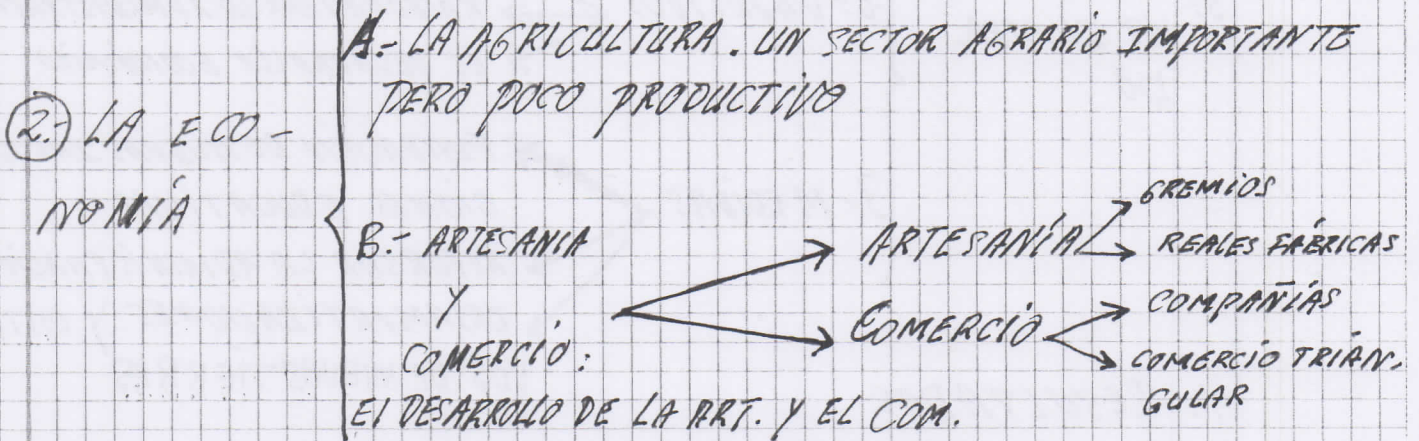 A.- LA AGRICULTURA. UN SECTOR AGRARIO IMPORTANTE
PERO POCO PRODUCTIVO
2.- LA ECO-
NOMÍA
B.- ARTESANIA
Y
COMERCIO:
El DESARROLLO DE LA ART. Y EL COM.
ARTESANÍA
GREMIOS
REALES FÁBRICAS
COMERCIO
COMPAÑÍAS
COMERCIO TRIÁN.
GULAR